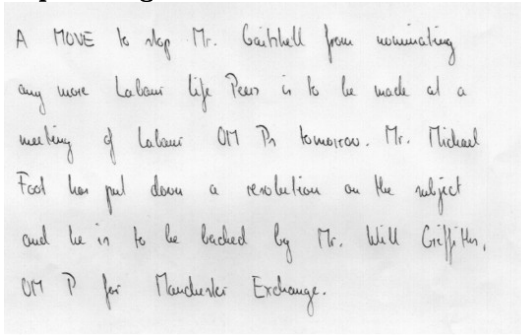 A MOVE to stop Mr. Gaitskell from nominating
any more Labour life Peers is to be made at a
meeting of Labour OM Ps tomorrow. Mr. Michael
Foot has put down a resolution on the subject
and he is to be backed by Mr. Will Griffiths,
OM P for Manchester Exchange.